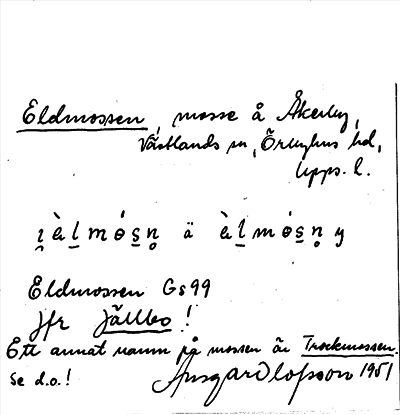 Eldmossen, mosse å Åkerby,
Västlands sn, Örbyhus hd,
Upps. l.
i̯ ὲl̠mós̠n̥ ä ὲl̠mós̠n̥ y
Eldmossen Gs 99
Jfr Jällbo!
Ett annat namn på mossen är Trockmossen.
Se d.o.! Ansgar Olofsson 1951